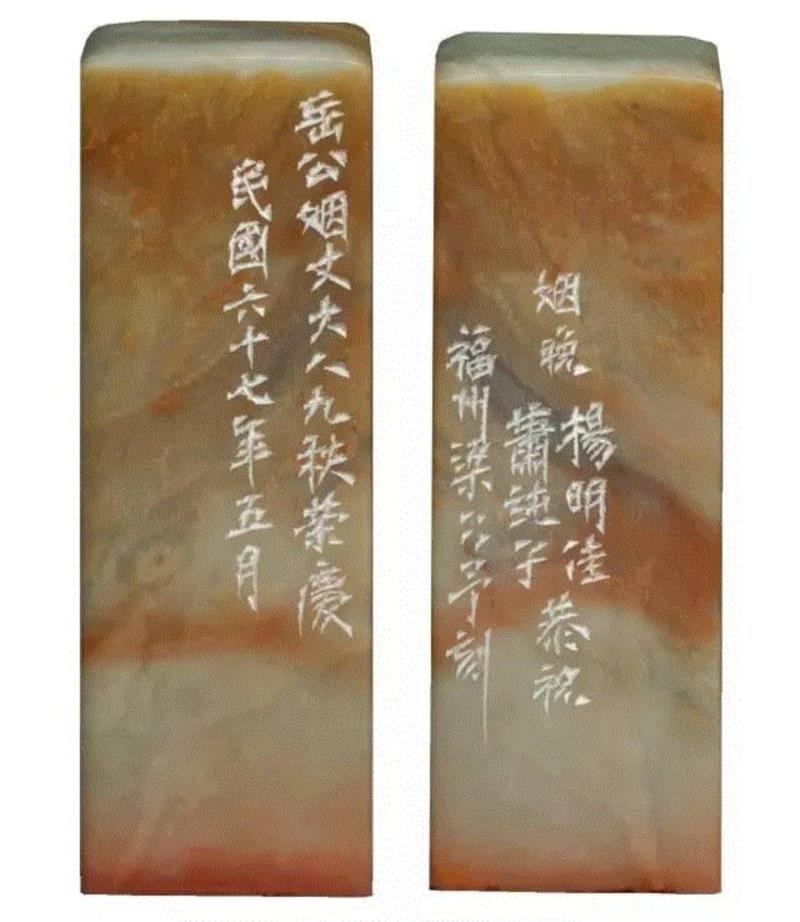 岳公姻丈大人九秩榮慶
民國六十七年五月
姻晚
楊明
蕭純子
恭祝
福州梁乃予刻